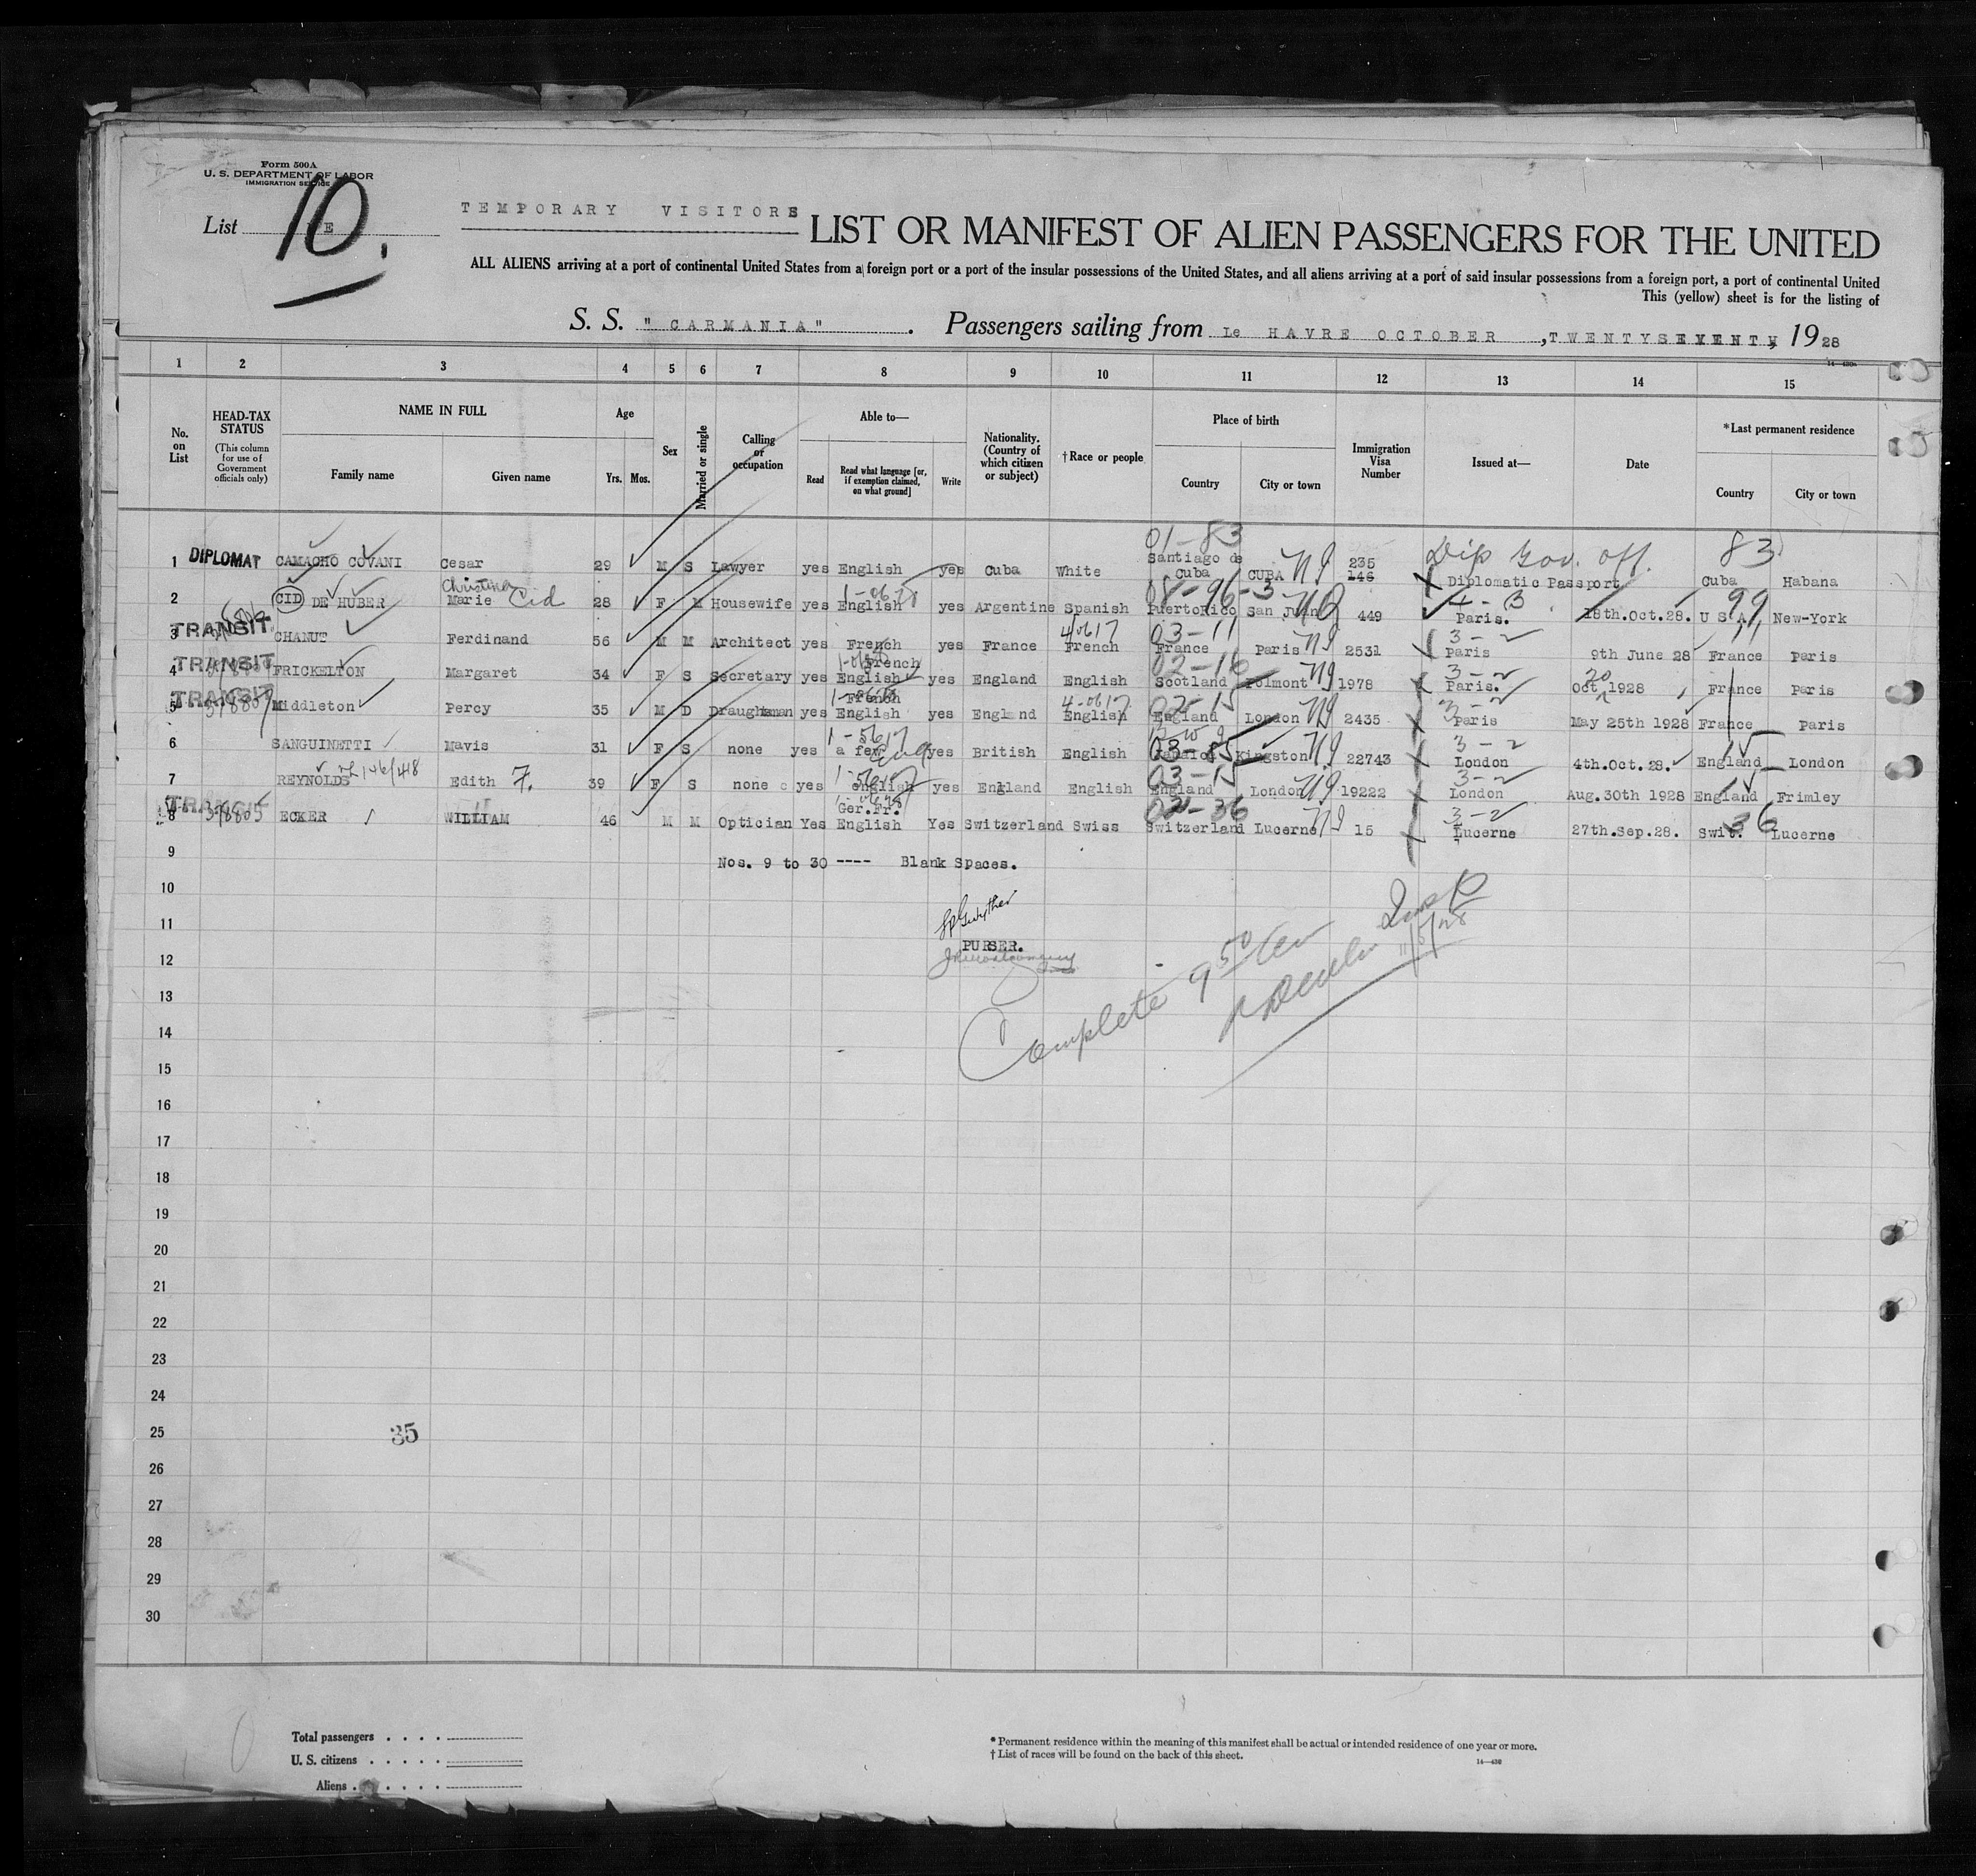 Form 500A
U. S. DEPARTMENT OF LABOR
IMMIGRATION SERVICE
List 10.
TEMPORARY VISITORS LIST OR MANIFEST OF ALIEN PASSENGERS FOR THE UNITED
ALL ALIENS arriving at a port of continental United States from a foreign port or a port of the insular possessions of the United States, and all aliens arriving at a port of said insular possessions from a foreign port, a port of continental United
This (yellow) sheet is for the listing of
S. S. "CARMANIA" . Passengers sailing from Le HAVRE OCTOBER , TWENTYSEVENTH, 1928
1 2 3 4 5 6 7 8 9 10 11 12 13 14 15
No. on List
HEAD-TAX STATUS
(This column for use of Government officials only)
NAME IN FULL
Family name Given name
Age
Yrs. Mos.
Sex
Married or single
Calling or occupation
Able to—
Read Read what language [or, if exemption claimed, on what ground] Write
Nationality. (Country of which citizen or subject)
†Race or people
Place of birth
Country City or town
Immigration Visa Number
Issued at—
Date
*Last permanent residence
Country City or town
01-83 Dip Gov. Off. 83
1 DIPLOMAT CAMACHO COVANI Cesar 29 M S Lawyer yes English yes Cuba White Santiago de Cuba CUBA 235 146 Diplomatic Passport Cuba Habana
Christina 08-96-3 4-3 99
2 CID DE HUBER Marie Cid 28 F M Housewife yes English yes Argentine Spanish PuertoRico San Juan 449 Paris. 18th.Oct.28. U S A New-York
40617 03-11 3-2
3 TRANSIT CHANUT Ferdinand 56 M M Architect yes French yes France French France Paris 2531 Paris 9th June 28 France Paris
French 02-16 3-2 20
4 TRANSIT FRICKELTON Margaret 34 F S Secretary yes English yes England English Scotland Polmont 1978 Paris. Oct 1928 France Paris
French 4-0617 02-15 3-2
5 TRANSIT Middleton Percy 35 M D Draughtsman yes English yes England English England London 2435 Paris May 25th 1928 France Paris
1-5617 03-85 3-2 15
6 SANGUINETTI Mavis 31 F S none yes a few Eng yes British English Jamaica Kingston 22743 London 4th.Oct.28. England London
03-15 3-2
7 REYNOLDS Edith F. 39 F S none yes english yes England English England London 19222 London Aug.30th 1928 England Frimley
Ger.Fr. 02-36 3-2 36
8 TRANSIT 38805 ECKER WILLIAM 46 M M Optician Yes English Yes Switzerland Swiss Switzerland Lucerne 15 Lucerne 27th.Sep.28. Swit. Lucerne
9 Nos. 9 to 30 ---- Blank Spaces.
10
11
PURSER.
12
Complete 9 50
11/5/28
13
14
15
16
17
18
19
20
21
22
23
24
25 35
26
27
28
29
30
Total passengers . . . .
U. S. citizens . . . . .
Aliens . . . . . .
* Permanent residence within the meaning of this manifest shall be actual or intended residence of one year or more.
† List of races will be found on the back of this sheet.
14—430